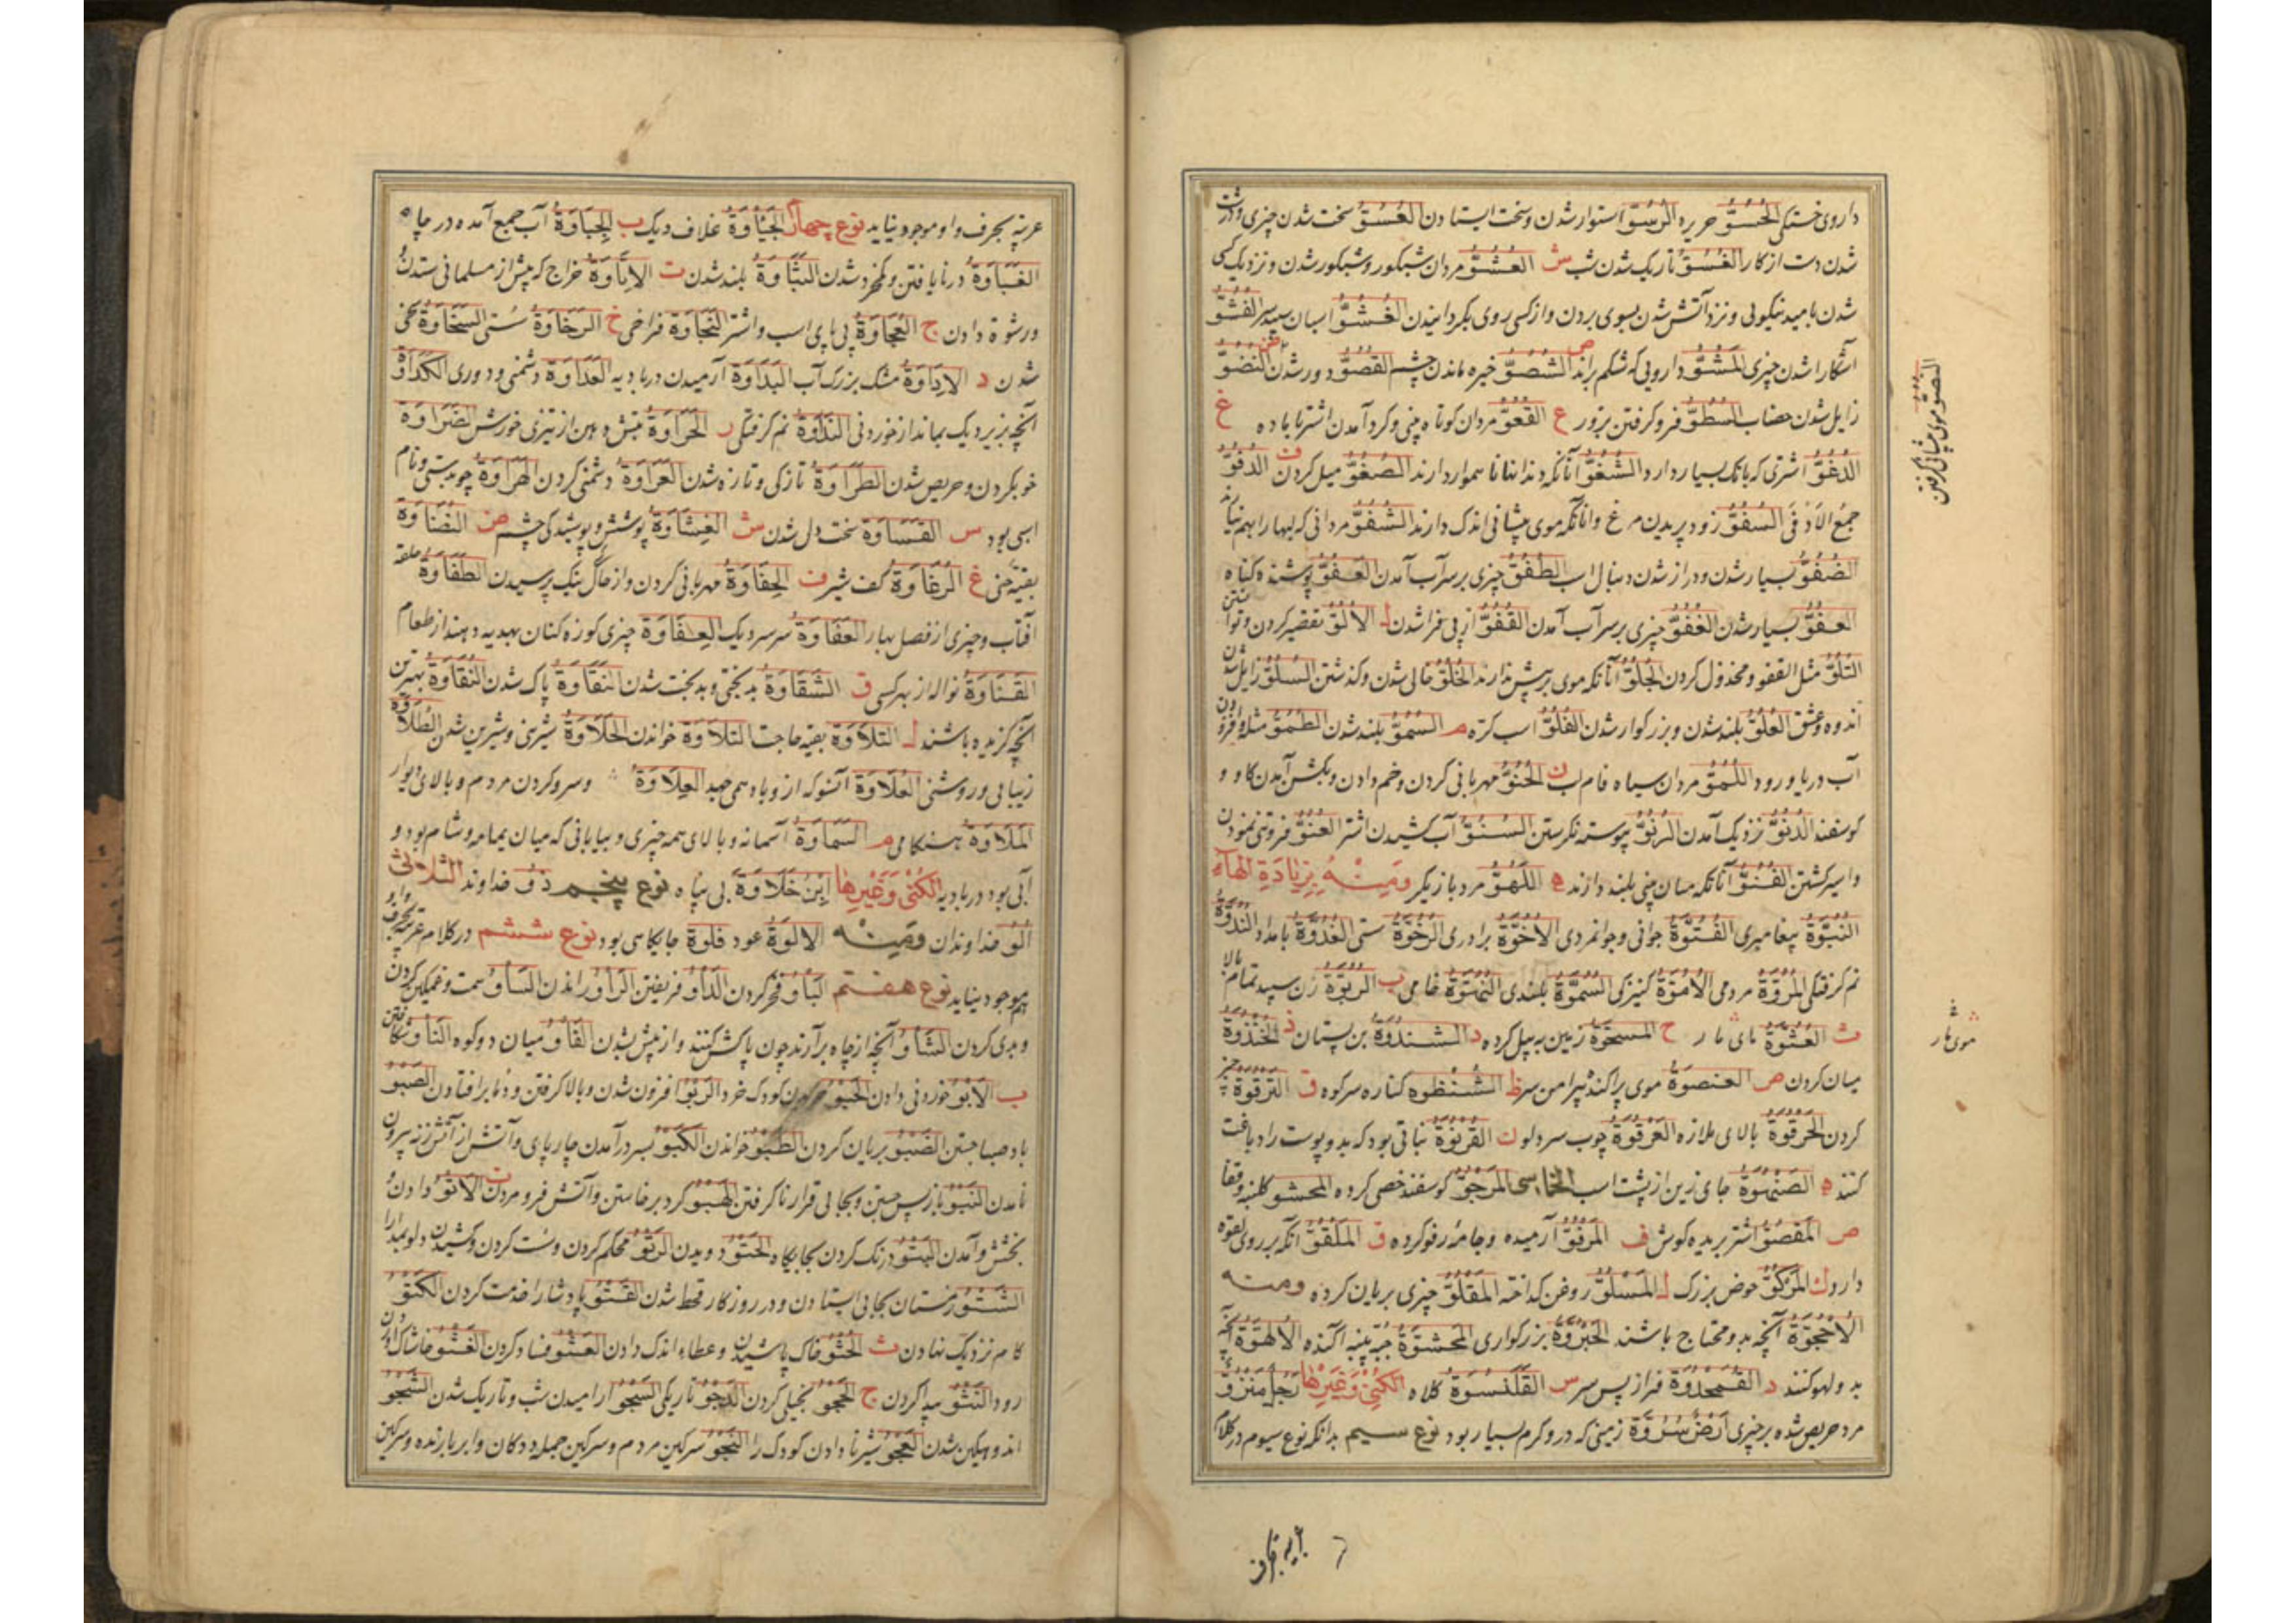 داروی خستگی الحُسُوّ حریره الرُسُوّ استوار شدن و سخت ایستادن العُسُوّ سخت شدن چیزی و درشت
شدن دست از کار الغُسُوّ تاریک شدن شب ش العُشُوّ مردان شبکور و شبکور شدن و نزدیک کسی
شدن بامید نیکویی و نزد آتش شدن بسوی بردن و از کسی روی بگردانیدن الغُشُوّ اسبان سپید سر الفُشُوّ
آشکارا شدن چیزی المَشُوّ دارویی که شکم براند ص الشُصُوّ خیره ماندن چشم القُصُوّ دور شدن ض النُضُوّ
زایل شدن خضاب السُطُوّ فرو گرفتن بزور ع القُعُوّ مردان کوتاه بینی و گرد آمدن اشتر با ماده غ
الدُغُوّ اشتری که بانگ بسیار دارد الشُغُوّ آنانکه دندانها ناهموار دارند الصُغُوّ میل کردن ف الدُفُوّ
جمعُ الاَدْفی السُفُوّ زود پریدن مرغ و آنانکه موی پیشانی اندک دارند الشُفُوّ مردانی که لبها را بهم نیارند
الضُفُوّ بسیار شدن و دراز شدن دنبال اسب الطُفُوّ چیزی بر سر آب آمدن العَفُوّ پوشنده گناه
العُفُوّ بسیار شدن الغُفُوّ چیزی بر سر آب آمدن القُفُوّ از پی فرا شدن ل الالُوّ تقصیر کردن و توانستن
التُلُوّ مثل القفو و مخذول کردن الجُلُوّ آنانکه موی بر پیش ندارند الخُلُوّ خالی شدن و گذشتن السُلُوّ زایل شدن
اندوه و عشق العُلُوّ بلند شدن و بزرگوار شدن الفَلُوّ اسب کره م السُمُوّ بلند شدن الطُمُوّ مثله و افزودن
آب دریا و رود اللُمُوّ مردان سیاه فام لب ن الحُنُوّ مهربانی کردن و خم دادن و بگشن آمدن گاو و
گوسفند الدُنُوّ نزدیک آمدن الرُنُوّ پیوسته نگرستن السُنُوّ آب کشیدن اشتر العُنُوّ فروتنی نمودن
و اسیر گشتن القُنُوّ آنانکه میان بینی بلند دارند ه اللَهُوّ مرد بازیگر ومنه بزیادة الهاء
النُبُوّة پیغامبری الفُتُوّة جوانی و جوانمردی الاُخُوّة برادری الرُخُوّة سستی الغُدُوّة بامداد النُدُوّة
نم گرفتگی المُرُوّة مردمی الاُمُوّة کنیزکی السُمُوّة بلندی النُهُوّة خامی ب الرَبُوّة زن سپید تمام بالا
ث العُثُوّة مای مار ح المسحُوّة زمین به بیل کرده د الثندُوَة بن پستان ذ الخُنذُوَة
میان کردن ص العنصُوَة موی پراکنده پیرامن سر ظ الشُنظُوَه کناره سر کوه ق الترقُوَة چنبر
گردن الحَرقُوَة بالای ملازه العَرقُوَة چوب سر دلو ن القَرنُوَة نباتی بود که بدو پوست را دباغت
کنند ه الصَنهُوَة جای زین از پشت اسب الخماسی المَرجُوّ گوسفند خصی کرده المحشُو
ص المَقصُوّ اشتر بریده گوش ف المَرفُوّ آرمیده و جامه رفو کرده ق المَلقُوّ آنکه بر روی لقوه
دارد ک المَرکُوّ حوض بزرگ ل المَسلُوّ روغن گداخته المَقلُوّ چیزی بریان کرده ومنه
الاُحجُوّة آنچه بدو محتاج باشند الجَبرُوَّة بزرگواری المَحشُوّة جبه پنبه آکنده الاُلهُوّة آنچه
بدو لهو کنند د القَمَحدُوَة فراز پس سر س القَلَنسُوَة کلاه الکُنی وَغَیرها رجلٌ مَنزُوٌّ
مرد حریص شده بر چیزی ارضٌ مَسرُوّة زمینی که درو کرم بسیار بود نوع سیم بدانکه نوع سیوم در کلام
موی مار
عرب بحرف واو موجود نیاید نوع چهارم الجَیاوَة غلاف دیگ ب الجِباوَة آب جمع آمده در چاه
الغَباوَة درنایافتن و کمخرد شدن النَباوَة بلند شدن ت الاِتاوَة خراج که پیش از مسلمانی ستدند
و رشوة دادن ج العُجاوَة پی پای اسب و اشتر النَجاوَة فراخی خ الرَخاوَة سستی السَخاوَة سخی
شدن د الاِداوَة مشک بزرگ آب البَداوَة آرمیدن در بادیه العَداوَة دشمنی و دوری الکُدادَة
آنچه بزیر دیگ بماند از خوردنی النَداوَة نم گرفتگی ر الحَراوَة تبش دهن از تیزی خورش الضَراوَة
خو کردن و حریص شدن الطَراوَة تازگی و تازه شدن العَراوَة دشمنی کردن الهِراوَة چوبدستی و نام
اسبی بود س القَساوَة سخت دل شدن ش الغِشاوَة پوشش و پوشیدگی چشم ض النُضاوَة
بقیه حنی غ الرُغاوَة کف شیر ف الحَفاوَة مهربانی کردن و از حال نیک پرسیدن الطُفاوَة حلقه
آفتاب و چیزی از فصل بهار العُفاوَة سر سر دیگ العِفاوَة چیزی کوزه کنان بهدیه دهند از طعام
القَناوَة نواله از بهر کسی ق الشَقاوَة بدبختی و بدبخت شدن النَقاوَة پاک شدن النُقاوَة بهترین
آنچه گزیده باشند ل التُلاوَة بقیه حاجت التِلاوَة خواندن الحَلاوَة شیرینی و شیرین شدن الطُلاوَة
زیبایی و روشنی العُلاوَة آنسو که ازو باد همی جهد العِلاوَة و سرو گردن مردم و بالای دیوار
المَلاوَة هنگامی م السَماوَة آسمانه و بالای همه چیزی و بیابانی که میان یمامه و شام بود و
آبی بود در بادیه الکُنی وَغَیرها اِبنُ خَلاوَة بی پناه نوع پنجم ذُو خداوند الثلاثی
اُلُو خداوندان ومنه الاَلُوَة عود قلوة جایگاهی بود نوع ششم در کلام عرب بحرف واو
هم موجود نیاید نوع هفتم البَاو فخر کردن الدَاو فریفتن الرَاو راندن السَاو همت و غمگین کردن
و بدی کردن الشَاو آنچه از چاه برآرند چون پاکش کنند و از پیش شدن الفَاو میان دو کوه النَاو شکافتن
ب الاَبو خوردنی دادن الحَبو کودک خرد الرَبو افزون شدن و بالا گرفتن و دما بر افتادن الصَبو
باد صبا جستن الضَبو بریان کردن الطَبو خواندن الکَبو بسر در آمدن چارپای و آتش از آتش زنه بیرون
نامدن النَبو باز پس جستن و بجایی قرار ناگرفتن الهَبو گرد برخاستن و آتش فرو مردن ت الاَتو دادن
بخشش و آمدن البَتو درنگ کردن بجایگاه الحَتو دویدن الرَتو محکم کردن و سست کردن و کشیدن دلو بمدارا
الشَتو زمستان بجایی ایستادن و در روزگار قحط شدن القَتو پادشا را خدمت کردن الکَتو
گام نزدیک نهادن ث الحَثو خاک پاشیدن و عطاء اندک دادن العَثو فساد کردن الغَثو خاشاک آوردن
رود النَثو پیدا کردن ج الحَجو بخیلی کردن الدَجو تاریکی السَجو آرامیدن شب و تاریک شدن الشَجو
اندوهگین شدن العَجو شیر نادادن کودک را النَجو سرگین مردم و سرگین جمله ددکان و ابر بارنده و سرگین